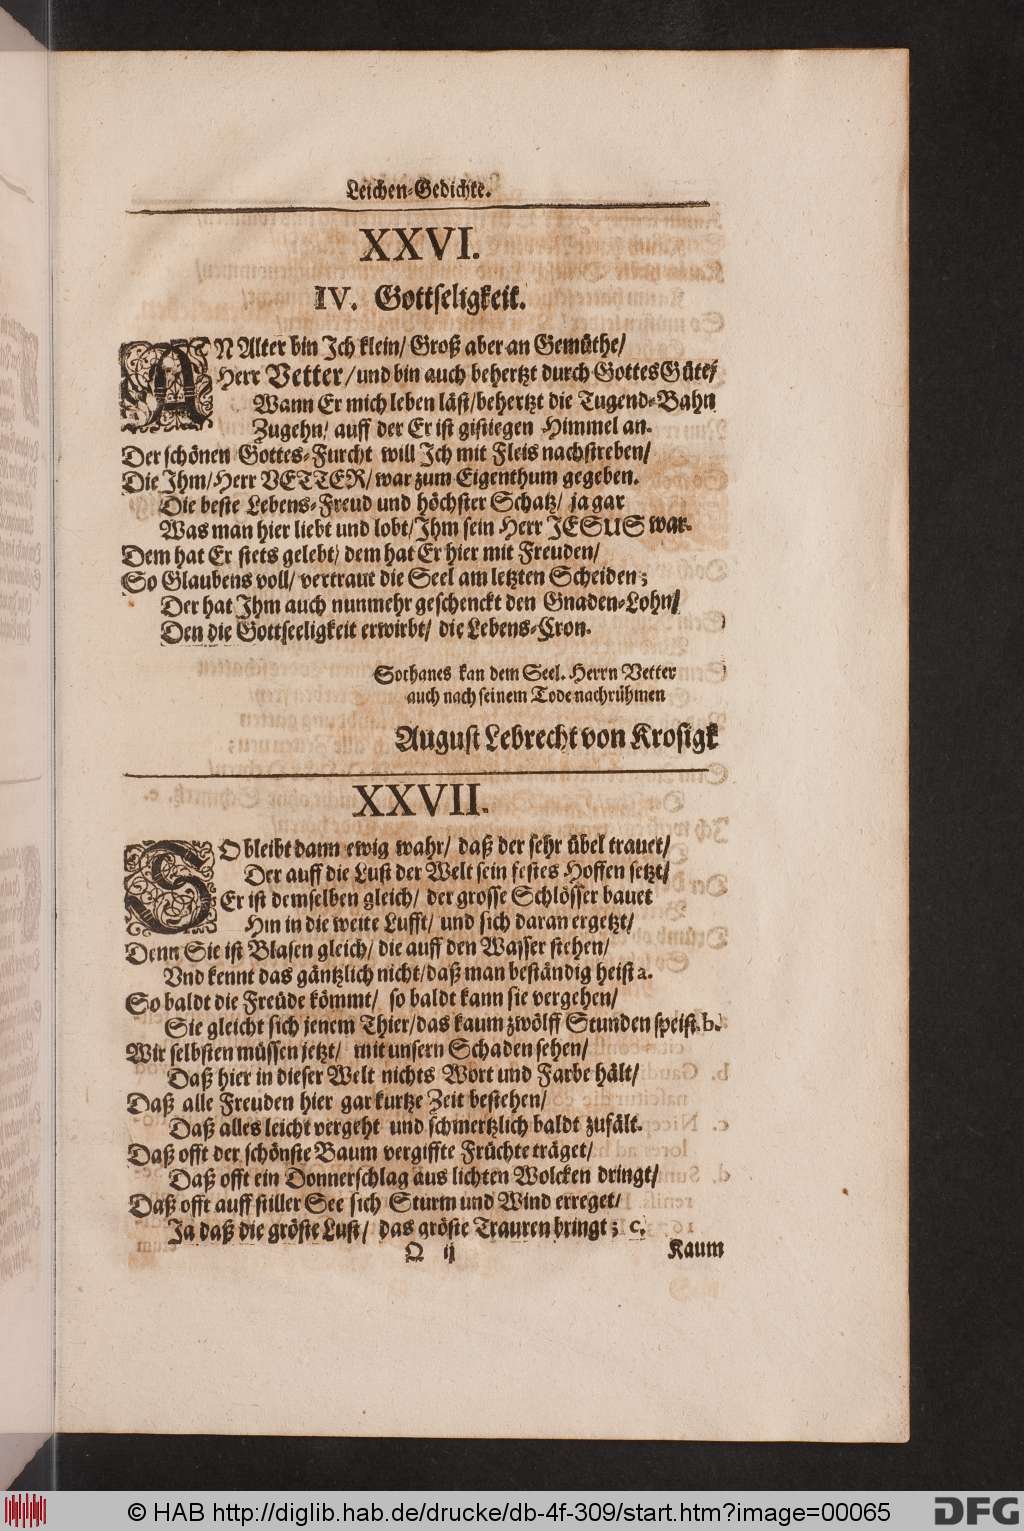 Leichen-Gedichte.
XXVI.
IV. Gottseligkeit.
AN Alter bin Ich klein/ Groß aber an Gemüthe/
Herr Vetter/ und bin auch behertzt durch Gottes Güte/
Wann Er mich leben läst/ behertzt die Tugend-Bahn
Zugehn/ auff der Er ist gistiegen Himmel an.
Der schönen Gottes-Furcht will Ich mit Fleis nachstreben/
Die Ihm/ Herr VETTER/ war zum Eigenthum gegeben.
Die beste Lebens-Freud und höchster Schatz/ ja gar
Was man hier liebt und lobt/ Ihm sein Herr JESUS war.
Dem hat Er stets gelebt/ dem hat Er hier mit Freuden/
So Glaubens voll/ vertraut die Seel am letzten Scheiden;
Der hat Ihm auch nunmehr geschenckt den Gnaden-Lohn/
Den die Gottseeligkeit erwirbt/ die Lebens-Cron.
Sothanes kan dem Seel. Herrn Vetter
auch nach seinem Tode nachrühmen
August Lebrecht von Krosigk
XXVII.
SO bleibt dann ewig wahr/ daß der sehr übel trauet/
Der auff die Lust der Welt sein festes Hoffen setzt/
Er ist demselben gleich/ der grosse Schlösser bauet
Hin in die weite Lufft/ und sich daran ergetzt/
Denn Sie ist Blasen gleich/ die auff den Wasser stehen/
Vnd kennt das gäntzlich nicht/ daß man beständig heist a.
So baldt die Freüde kömmt/ so baldt kann sie vergehen/
Sie gleicht sich jenem Thier/ das kaum zwölff Stunden speist. b.
Wir selbsten müssen jetzt/ mit unsern Schaden sehen/
Daß hier in dieser Welt nichts Wort und Farbe hält/
Daß alle Freuden hier gar kurtze Zeit bestehen/
Daß alles leicht vergeht und schmertzlich baldt zufält.
Daß offt der schönste Baum vergiffte Früchte träget/
Daß offt ein Donnerschlag aus lichten Wolcken dringt/
Daß offt auff stiller See sich Sturm und Wind erreget/
Ja daß die gröste Lust/ das gröste Trauren bringt; c.
Q ij
Kaum
© HAB http://diglib.hab.de/drucke/db-4f-309/start.htm?image=00065
DFG